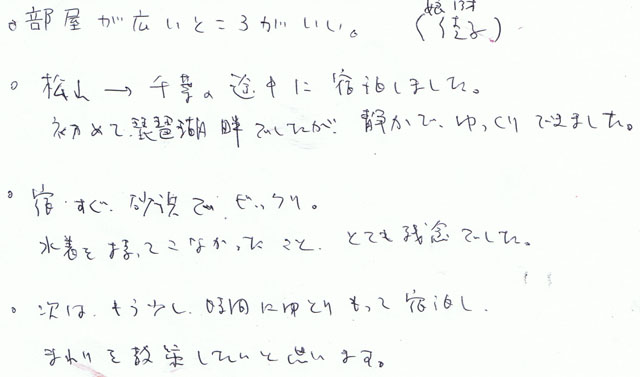 。部屋が広いところがいい。
娘 13才
(佳子)
。松山→千葉の途中に宿泊しました。
初めて琵琶湖畔でしたが、静かで、ゆっくりできました。
。宿、すぐ、砂浜で、ビックリ。
水着を持ってこなかったこと、とても残念でした。
。次は、もう少し、時間にゆとりもって宿泊し、
まわりを散策したいと思います。